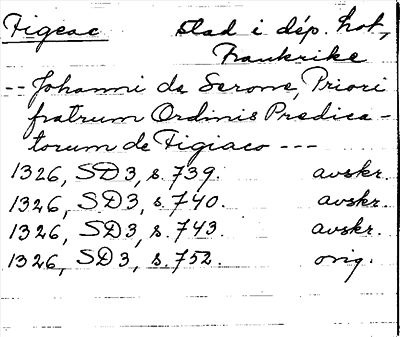 Figeac stad i dép. Lot,
Frankrike
-- Johanni de Serone, Priori
fratrum Ordinis Predica-
torum de Figiaco ---
1326, SD3, s. 739. avskr.
1326, SD3, s. 740. avskr.
1326, SD3, s. 743. avskr.
1326, SD3, s. 752. orig.